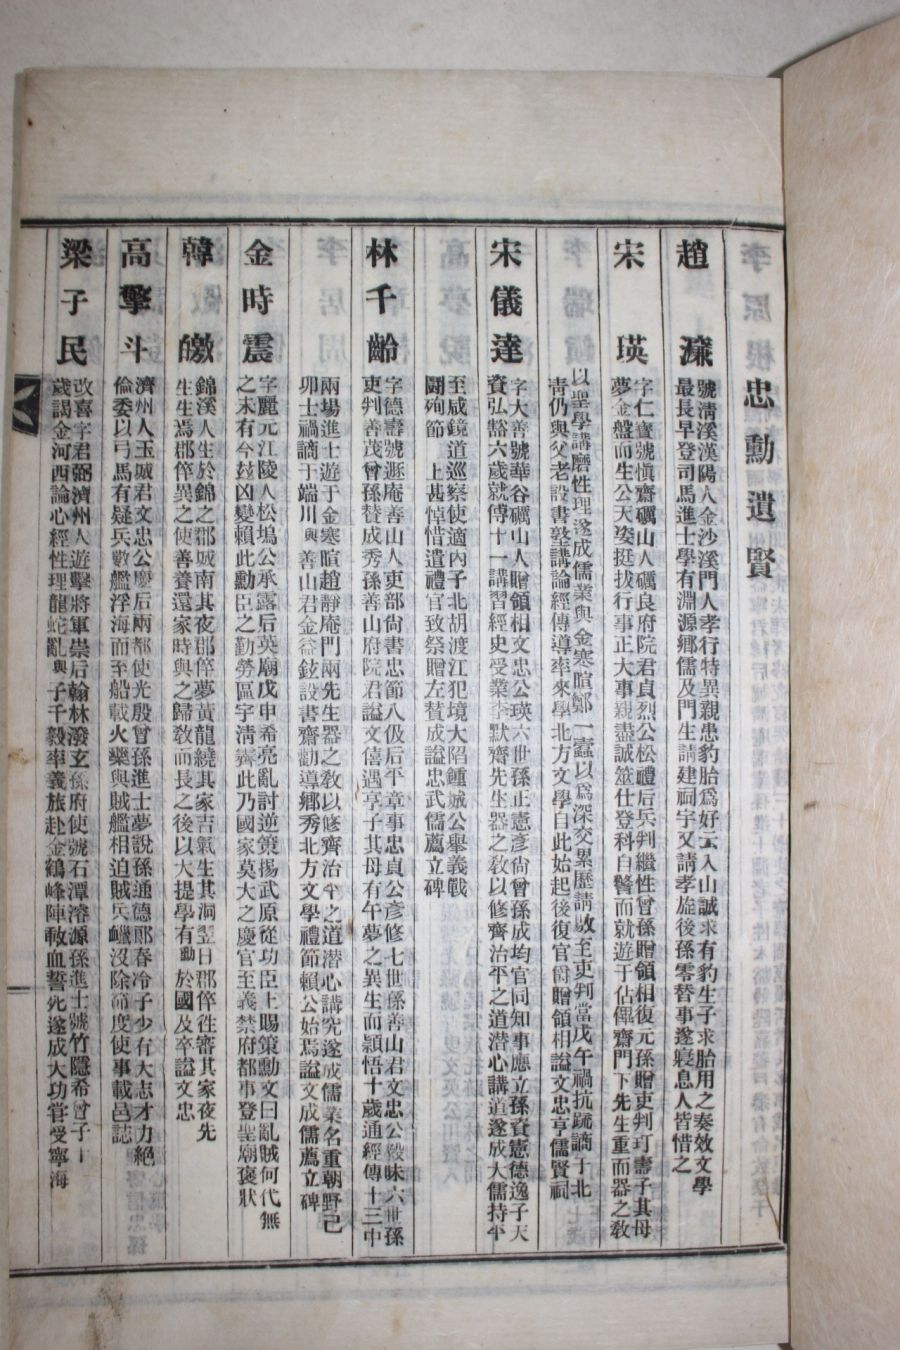 忠勳遺賢
趙濂
號淸溪漢陽人金沙溪門人孝行特異親患豹胎爲好云入山誠求有豹生子求胎用之奏效文學
最長早登司馬進士學有淵源鄉儒及門生請建祠宇又請孝旋後孫零替事遂寢息人皆惜之
宋瑛
字仁寶號愼齋礪山人礪良府院君貞烈公松禮后兵判繼性曾孫贈領相復元孫贈吏判玎壽子其母
夢金盤而生公天姿挺拔行事正大事親盡誠筮仕登科白醫而就遊于佔俾齋門下先生重而器之敎
以聖學講磨性理遂成儒業與金寒暄鄭一蠹以爲深交累歷諸敭至吏判當戊午禍抗疏謫于北
靑仍與父老設書塾講論經傳導率來學北方文學自此始起後復官爵贈領相謚文忠享儒賢祠
宋儀達
字大善號華谷礪山人贈領相文忠公瑛六世孫正憲彦尙曾孫成均官同知事應立孫資憲德逸子天
資弘豁六歲就傅十一講習經史受業李默齋先生器之敎以修齊治平之道潛心講道遂成大儒持平
至咸鏡道巡察使適內子北胡渡江犯境大陷鍾城公擧義戰
鬪殉節 上甚悼惜遺禮官致祭贈左贊成謚忠武儒薦立碑
林千齡
字德壽號遯庵善山人吏部尙書忠節八伋后平章事忠貞公彦修七世孫善山君文忠公毅昧六世孫
吏判善茂曾孫贊成秀孫善山府院君謚文僖遇亨子其母有午夢之異生而頴悟十歲通經傳十三中
兩場進士遊于金寒暄趙靜庵門兩先生器之敎以修齊治平之道潛心講究遂成儒業名重朝野己
卯士禍謫于端川與善山君金益鉉設書齋勸導鄉秀北方文學禮節賴公始焉謚文成儒薦立碑
金時震
字麗元江陵人松塢公承露后英廟戊申希亮亂討逆策揚武原從功臣上賜策勳文曰亂賊何代無
之未有今玆凶變賴此勳臣之勤勞區宇淸霽此乃國家莫大之慶官至義禁府都事登聖廟褒狀
韓皦
錦溪人生於錦之郡城南其夜郡倅夢黃龍繞其家吉氣生其洞翌日郡倅徃審其家夜先
生生焉郡倅異之使善養還家時與之歸敎而長之後以大提學有勳於國及卒謚文忠
高擎斗
濟州人玉城君文忠公慶后兩都使光殷曾孫進士夢說孫通德郞春冷子少有大志才力絕
倫委以弓馬有疑兵數艦浮海而至船載火藥與賊艦相迫賊兵衊沒除節度使事載邑誌
梁子民
改喜字君弼濟州人遊擊將軍崇后翰林潑玄孫府使號石潭濬源孫進士號竹隱希曾子十
歲謁金河西論心經性理龍蛇亂與子千毅率義旅赴金鶴峰陣敵血誓死遂成大功甞受寧海